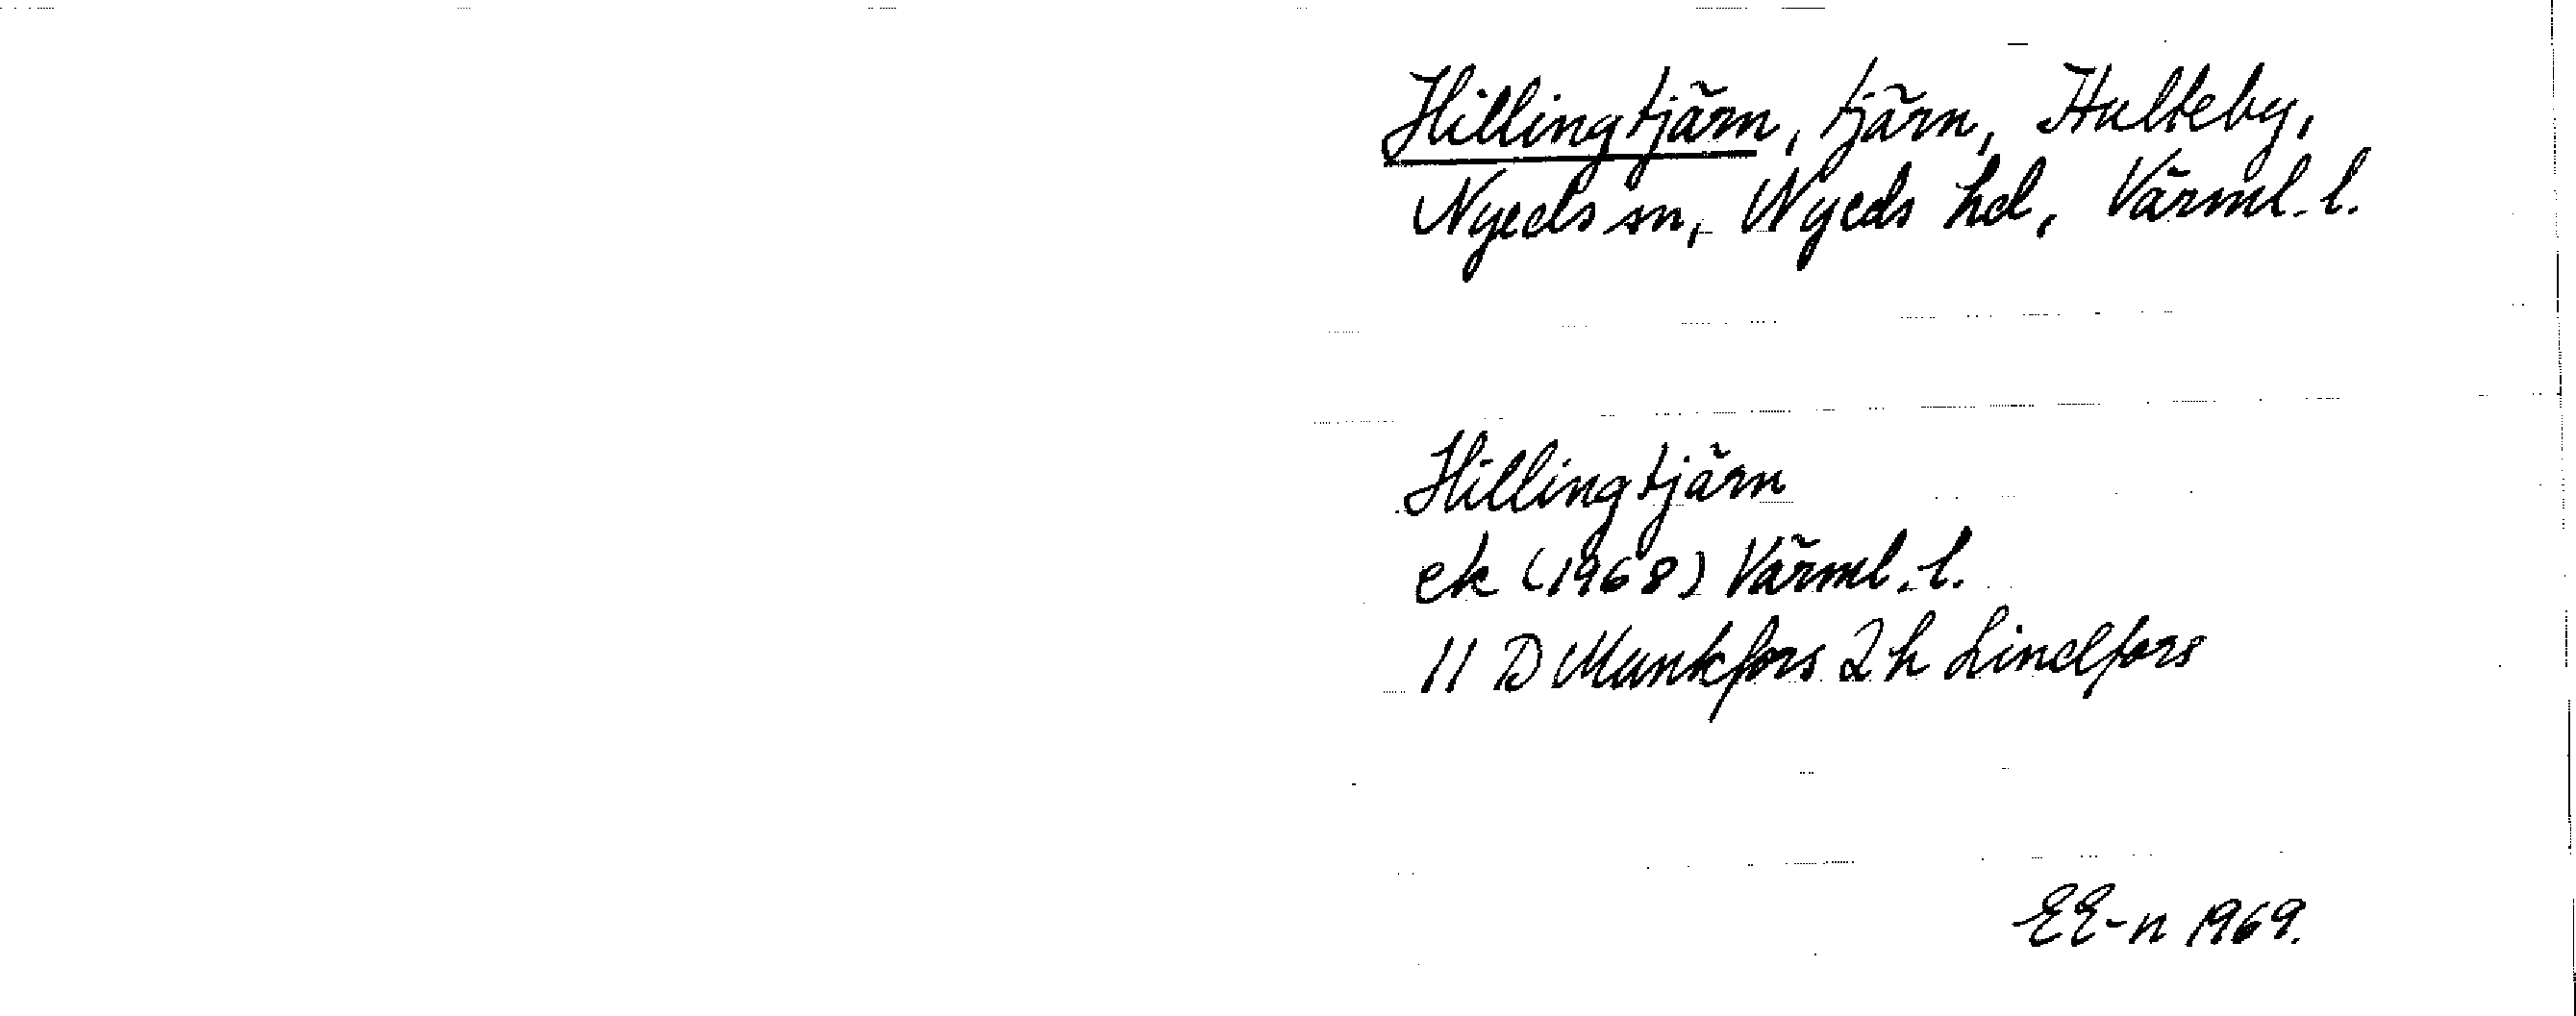 Hillingtjärn, tjärn, Hulteby,
Nyeds sn, Nyeds hd, Värml. l.
Hillingtjärn
ek (1968) Värml. l.
11 D Munkfors 2 h Lindfors
EE-n 1969.